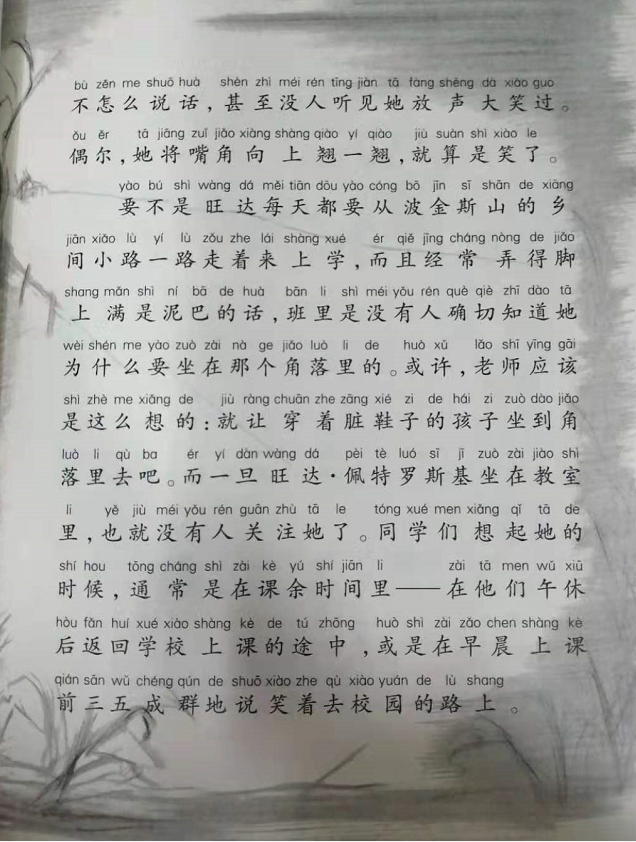 bù zěn me shuō huà shèn zhì méi rén tīng jiàn tā fàng shēng dà xiào guo
不怎么说话，甚至没人听见她放声大笑过。
ǒu ěr tā jiāng zuǐ jiǎo xiàng shàng qiào yí qiào jiù suàn shì xiào le
偶尔，她将嘴角向上翘一翘，就算是笑了。
yào bú shì wàng dá měi tiān dōu yào cóng bō jīn sī shān de xiāng
要不是旺达每天都要从波金斯山的乡
jiān xiǎo lù yí lù zǒu zhe lái shàng xué ér qiě jīng cháng nòng de jiǎo
间小路一路走着来上学，而且经常弄得脚
shang mǎn shì ní bā de huà bān li shì méi yǒu rén què qiè zhī dào tā
上满是泥巴的话，班里是没有人确切知道她
wèi shén me yào zuò zài nà ge jiǎo luò li de huò xǔ lǎo shī yīng gāi
为什么要坐在那个角落里的。或许，老师应该
shì zhè me xiǎng de jiù ràng chuān zhe zāng xié zi de hái zi zuò dào jiǎo
是这么想的：就让穿着脏鞋子的孩子坐到角
luò li qù ba ér yí dàn wàng dá pèi tè luó sī jī zuò zài jiào shì
落里去吧。而一旦旺达·佩特罗斯基坐在教室
li yě jiù méi yǒu rén guān zhù tā le tóng xué men xiǎng qǐ tā de
里，也就没有人关注她了。同学们想起她的
shí hou tōng cháng shì zài kè yú shí jiān li zài tā men wǔ xiū
时候，通常是在课余时间里——在他们午休
hòu fǎn huí xué xiào shàng kè de tú zhōng huò shì zài zǎo chen shàng kè
后返回学校上课的途中，或是在早晨上课
qián sān wǔ chéng qún de shuō xiào zhe qù xiào yuán de lù shang
前三五成群地说笑着去校园的路上。